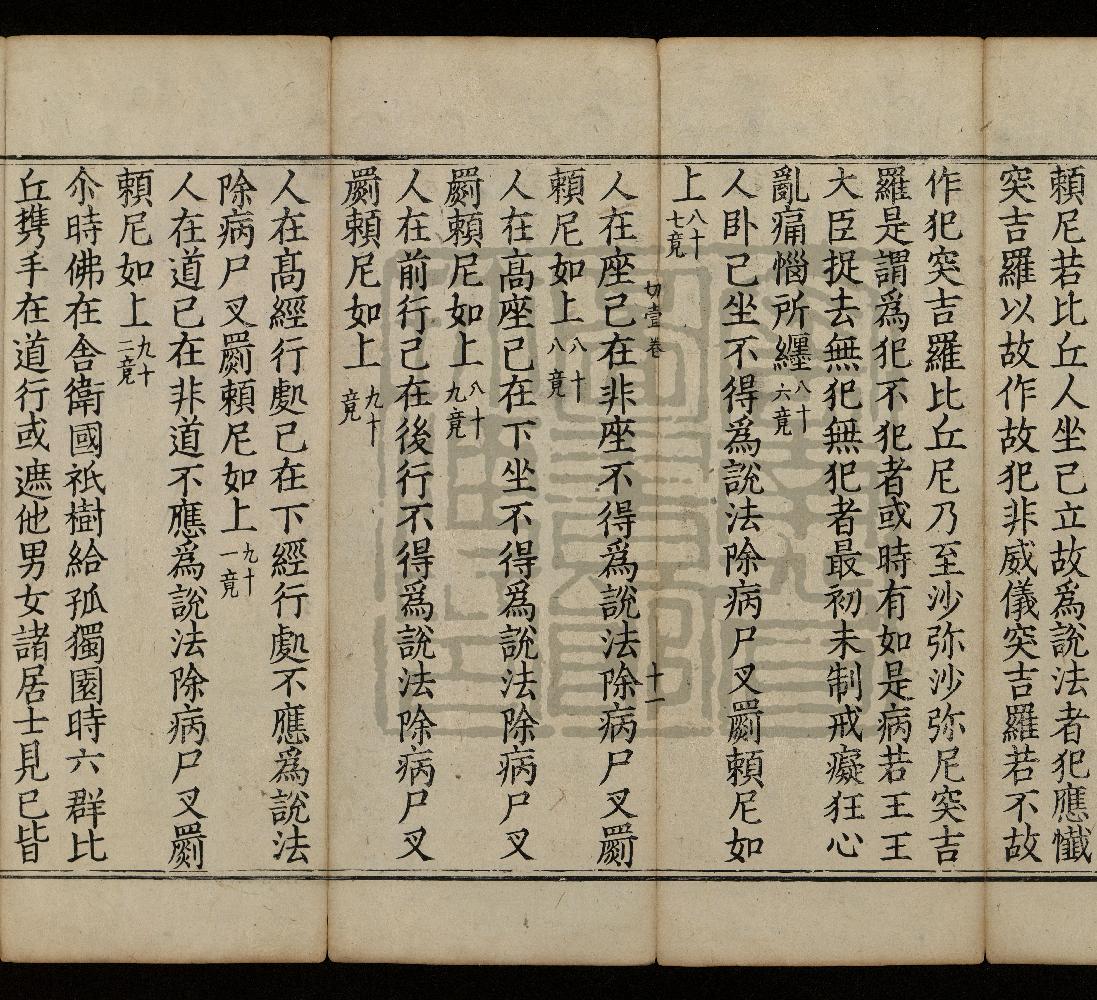 頼尼若比丘人坐己立故爲說法者犯應懺
突吉羅以故作故犯非威儀突吉羅若不故
作犯突吉羅比丘尼乃至沙弥沙弥尼突吉
羅是謂爲犯不犯者或時有如是病若王王
大臣捉去無犯無犯者最初未制戒癡狂心
亂痛惱所纏八十六竟
人卧己坐不得爲說法除病尸叉罽頼尼如
上八十七竟
切壹卷 十一
人在座己在非座不得爲說法除病尸叉罽
頼尼如上八十八竟
人在髙座己在下坐不得爲說法除病尸叉
罽頼尼如上八十九竟
人在前行己在後行不得爲說法除病尸叉
罽頼尼如上九十竟
人在髙經行處己在下經行處不應爲說法
除病尸叉罽頼尼如上九十一竟
人在道己在非道不應爲說法除病尸叉罽
頼尼如上九十二竟
尒時佛在舎衛國祇樹給孤獨園時六群比
丘携手在道行或遮他男女諸居士見已皆